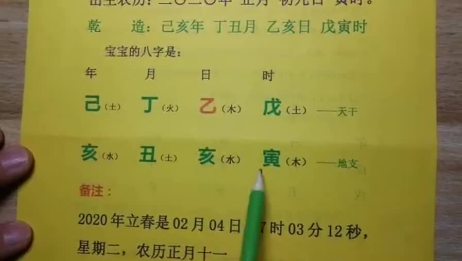 出生农历：二〇二〇年 正月 初九日 寅时。
乾 造：己亥年 丁丑月 乙亥日 戊寅时
宝宝的八字是：
年 月 日 时
己（土） 丁（火） 乙（木） 戊（土）——天干
亥（水） 丑（土） 亥（水） 寅（木）——地支
备注：
2020年立春是02月04日 7时03分12秒，
星期二，农历正月十一